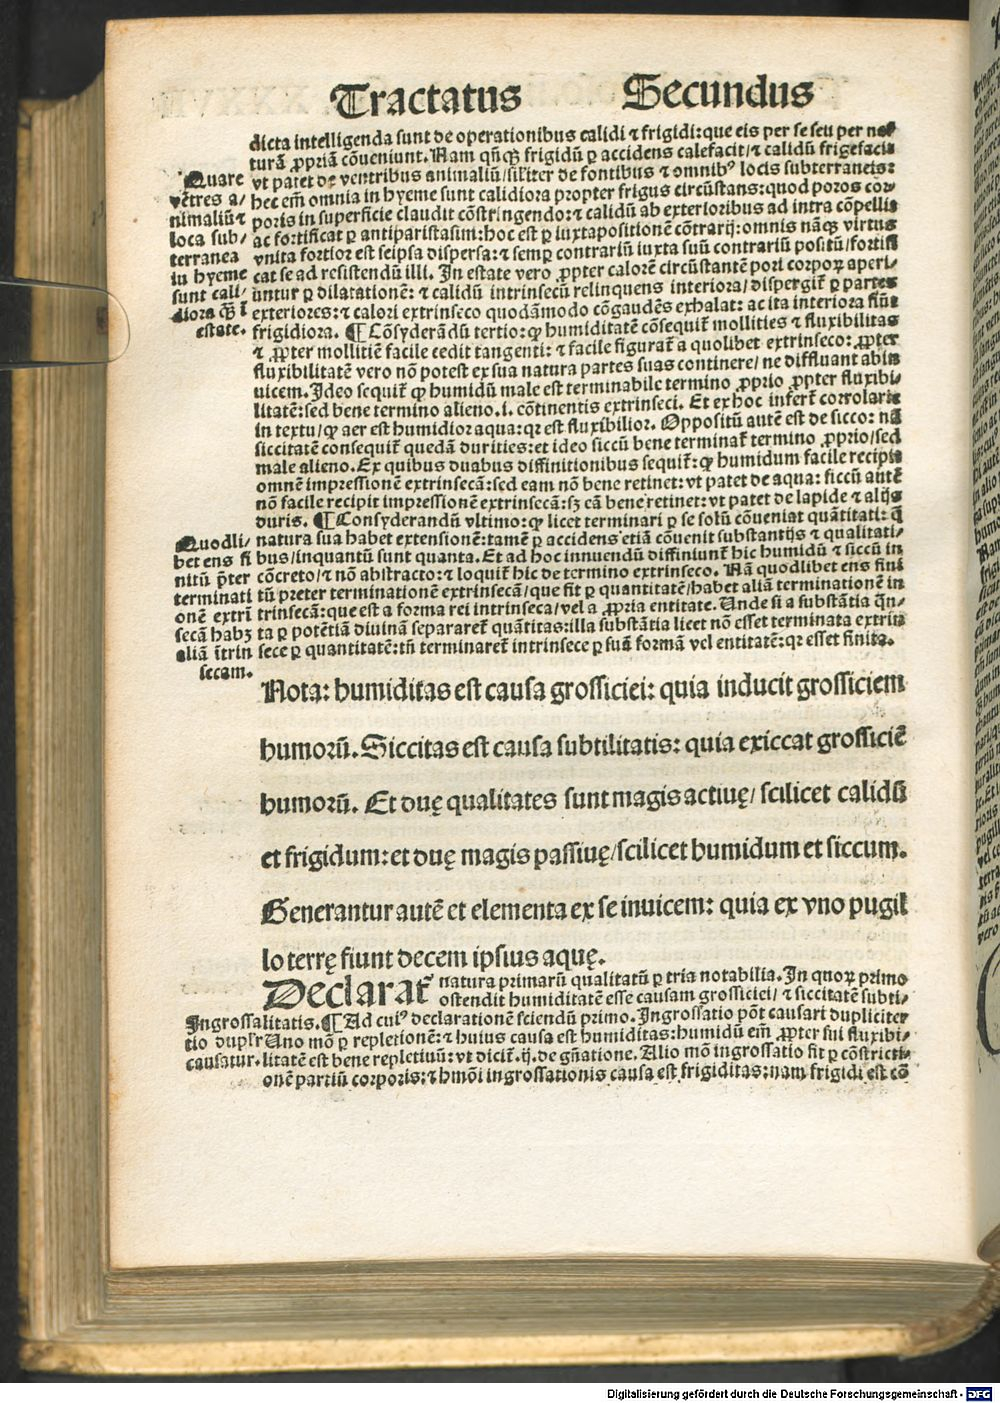 Tractatus Secundus
dicta intelligenda sunt de operationibus calidi ⁊ frigidi: que eis per se seu per na⸗
turã ꝓpriã cõueniunt. Nam qñcꝫ frigidũ ꝑ accidens calefacit/⁊ calidũ frigefacit
vt patet de ventribus animaliũ/siliter de fontibus ⁊ omnibꝰ locis subterraneis:
hec em̃ omnia in hyeme sunt calidiora propter frigus circũstans: quod poros cor⸗
poris in superficie claudit cõstringendo: ⁊ calidũ ab exterioribus ad intra cõpellit
ac fortificat ꝑ antiparistasim: hoc est ꝑ iuxtapositionẽ cõtrarij: omnis nãqꝫ virtus
vnita fortior est seipsa dispersa: ⁊ semꝑ contrariũ iuxta suũ contrariũ positũ/fortifi
cat se ad resistendũ illi. In estate vero ꝓpter calorẽ circũstantẽ pori corpoꝝ aperi⸗
untur ꝑ dilatationẽ: ⁊ calidũ intrinsecũ relinquens interiora/dispergit̃ ꝑ partes
exteriores: ⁊ calori extrinseco quodãmodo cõgaudẽs exhalat: ac ita interiora fiũt
frigidiora. ¶ Cõsyderãdũ tertio: ꝙ humiditatẽ cõsequit̃ mollities ⁊ fluxibilitas
⁊ ꝓpter mollitiẽ facile cedit tangenti: ⁊ facile figurat̃ a quolibet extrinseco: ꝓpter
fluxibilitatẽ vero nõ potest ex sua natura partes suas continere/ne diffluant abin
uicem. Ideo sequit̃ ꝙ humidũ male est terminabile termino ꝓprio ꝓpter fluxibi⸗
litatẽ: sed bene termino alieno. i. cõtinentis extrinseci. Et ex hoc infert̃ corrolarie
in textu/ꝙ aer est humidior aqua: qꝛ est fluxibilior. Oppositũ autẽ est de sicco: nã
siccitatẽ consequit̃ quedã durities: et ideo siccũ bene terminat̃ termino ꝓprio/sed
male alieno. Ex quibus duabus diffinitionibus sequit̃: ꝙ humidum facile recipit
omnẽ impressionẽ extrinsecã: sed eam nõ bene retinet: vt patet de aqua: siccũ autẽ
nõ facile recipit impressionẽ extrinsecã: sꝫ eã bene retinet: vt patet de lapide ⁊ alijs
duris. ¶ Consyderandũ vltimo: ꝙ licet terminari ꝑ se solũ cõueniat quãtitati: q̃
natura sua habet extensionẽ: tamẽ ꝑ accidens etiã cõuenit substantijs ⁊ qualitati⸗
bus/inquantũ sunt quanta. Et ad hoc innuendũ diffiniunt̃ hic humidũ ⁊ siccũ in
cõcreto/⁊ nõ abstracto: ⁊ loquit̃ hic de termino extrinseco. Nã quodlibet ens fini
tũ preter terminationẽ extrinsecã/que fit ꝑ quantitatẽ/habet aliã terminationẽ in
trinsecã: que est a forma rei intrinseca/vel a ꝓpria entitate. Unde si a substãtia quã⸗
ta ꝑ potẽtiã diuinã separaret̃ quãtitas: illa substãtia licet nõ esset terminata extrin
sece ꝑ quantitatẽ: tñ terminaret̃ intrinsece ꝑ suã formã vel entitatẽ: qꝛ esset finita.
Quare
vẽtres a/
nimaliũ⁊
loca sub/
terranea
in hyeme
sunt cali/
diora qꝫ ĩ
estate.
Quodli/
bet ens fi
nitũ p̃ter
terminati
onẽ extrĩ
secã habꝫ
aliã ĩtrin
secam.
Nota: humiditas est causa grossiciei: quia inducit grossiciem
humorũ. Siccitas est causa subtilitatis: quia exiccat grossiciẽ
humorũ. Et duę qualitates sunt magis actiuę/ scilicet calidũ
et frigidum: et duę magis passiuę/scilicet humidum et siccum.
Generantur autẽ et elementa ex se inuicem: quia ex vno pugil
lo terrę fiunt decem ipsius aquę.
Declarat̃ natura primarũ qualitatũ ꝑ tria notabilia. In quoꝝ primo
ostendit humiditatẽ esse causam grossiciei/ ⁊ siccitatẽ subti⸗
litatis. ¶ Ad cuiꝰ declarationẽ sciendũ primo. Ingrossatio põt causari dupliciter
Uno mõ ꝑ repletionẽ: ⁊ huius causa est humiditas: humidũ em̃ ꝓpter sui fluxibi⸗
litatẽ est bene repletiuũ: vt dicit̃. ij. de gñatione. Alio mõ ingrossatio fit ꝑ cõstricti⸗
onẽ partiũ corporis: ⁊ hmõi ingrossationis causa est frigiditas: nam frigidi est cõ
Ingrossa
tio duplr̃
causatur.
Digitalisierung gefördert durch die Deutsche Forschungsgemeinschaft - DFG